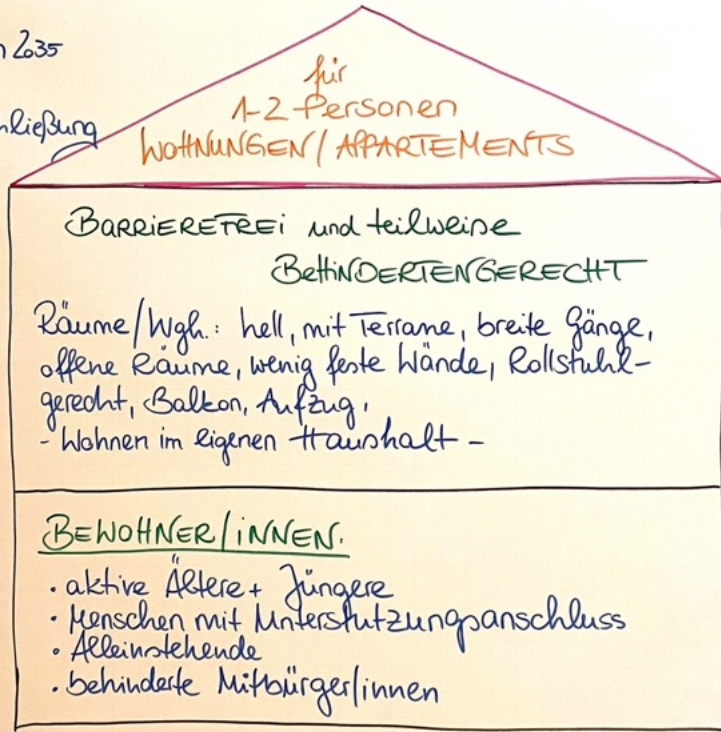 n 2035
ließung
für
1-2-Personen
WOHNUNGEN / APPARTEMENTS
BARRIEREFREI und teilweise
BEHINDERTENGERECHT
Räume/Wgh.: hell, mit Terrane, breite Gänge,
offene Räume, wenig feste Wände, Rollstuhl-
gerecht, Balkon, Aufzug,
- Wohnen im eigenen Haushalt -
BEWOHNER/INNEN.
· aktive Ältere + Jüngere
· Menschen mit Unterstutzungsanschluss
· Alleinstehende
· behinderte Mitbürger/innen